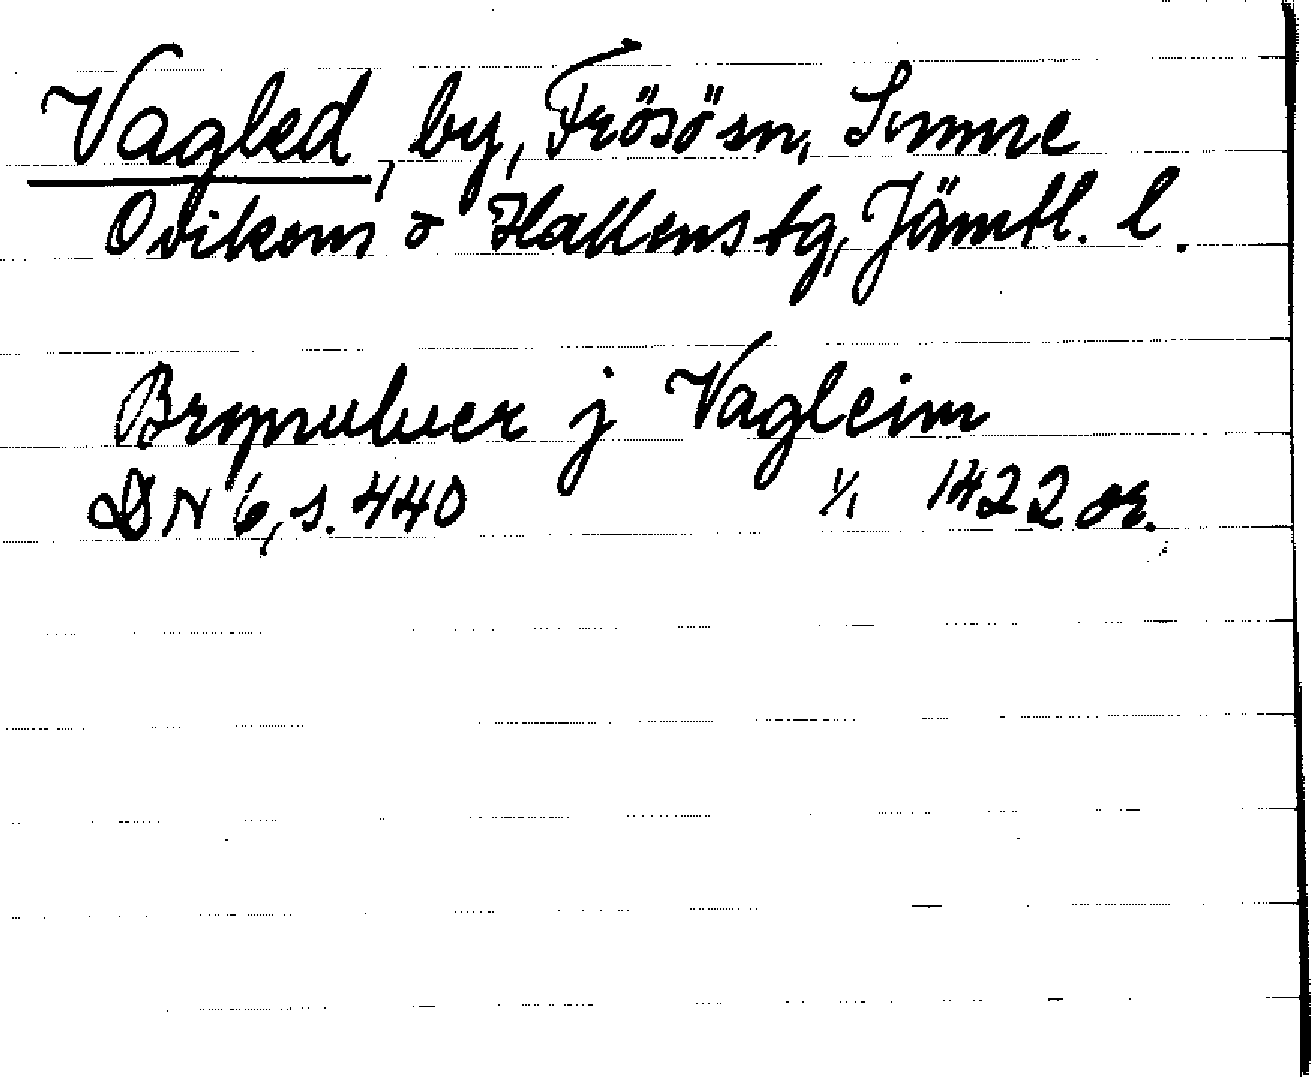 Vagled, by, Frösö sn, Sunne
Ovikens o Hallens tg, Jämtl. l.
Brynulwer j Vagleim
DN 6, s. 440 1/1 1422 or.